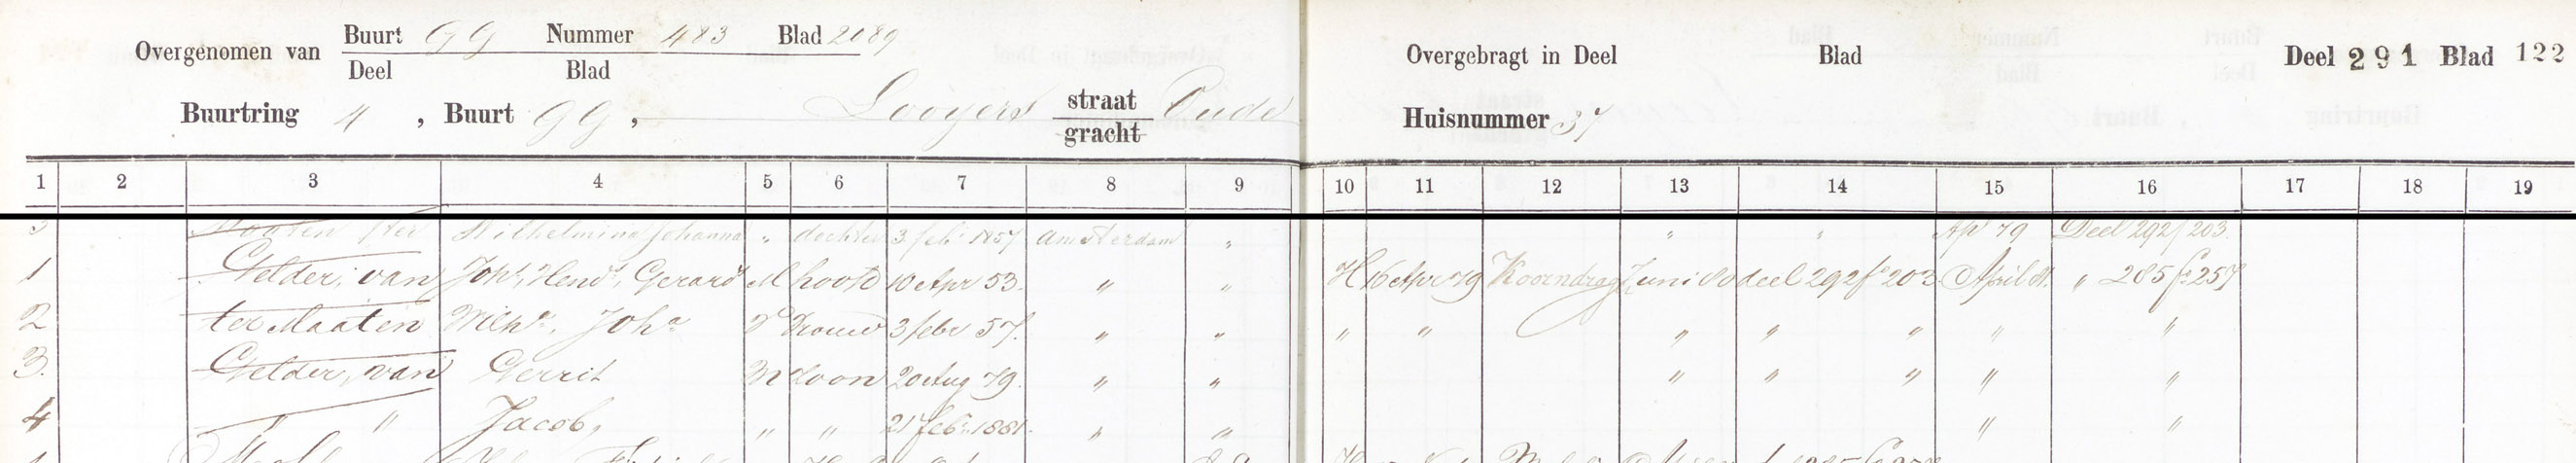 Overgenomen van Buurt GG Nummer 483 Blad 2089
Deel Blad
Overgebragt in Deel Blad Deel 291 Blad 122
Buurtring 4, Buurt GG, Looyers straat Oude
gracht
Huisnummer 37
1 2 3 4 5 6 7 8 9 10 11 12 13 14 15 16 17 18 19
3 Maaten, ter Wilhelmina Johanna " dochter 3 feb 1857 Amsterdam " " " Ap 79 Deel 292/203
1 Gelder, van Johs, Hends, Gerard M hoofd 10 Apr 53. " " H 16 Apr 79 Koorndrag Juni 80 deel 292 fo 203 April 81. " 285 fo 257
2 ter Maaten Wilha, Joha V Vrouw 3 febr 57. " " " " " " " " "
3. Gelder, van Gerrit M Zoon 20 Aug 79. " " " " " " "
4 " " Jacob, " " 21 feb. 1881. " " " "